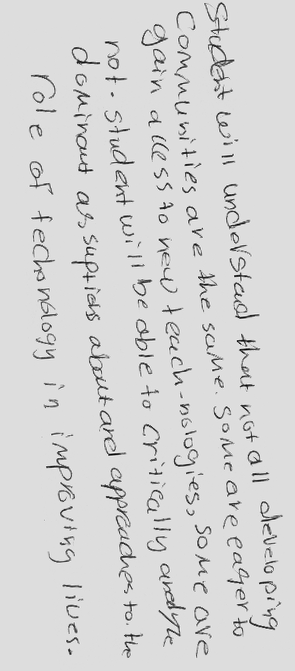 Student will understad that not all developing
Communities are the same. Some are eager to
gain access to new teach-nologies, some are
not. student will be able to critically analyze
dominant assuptios about and approaches to the
role of technology in improving lives.